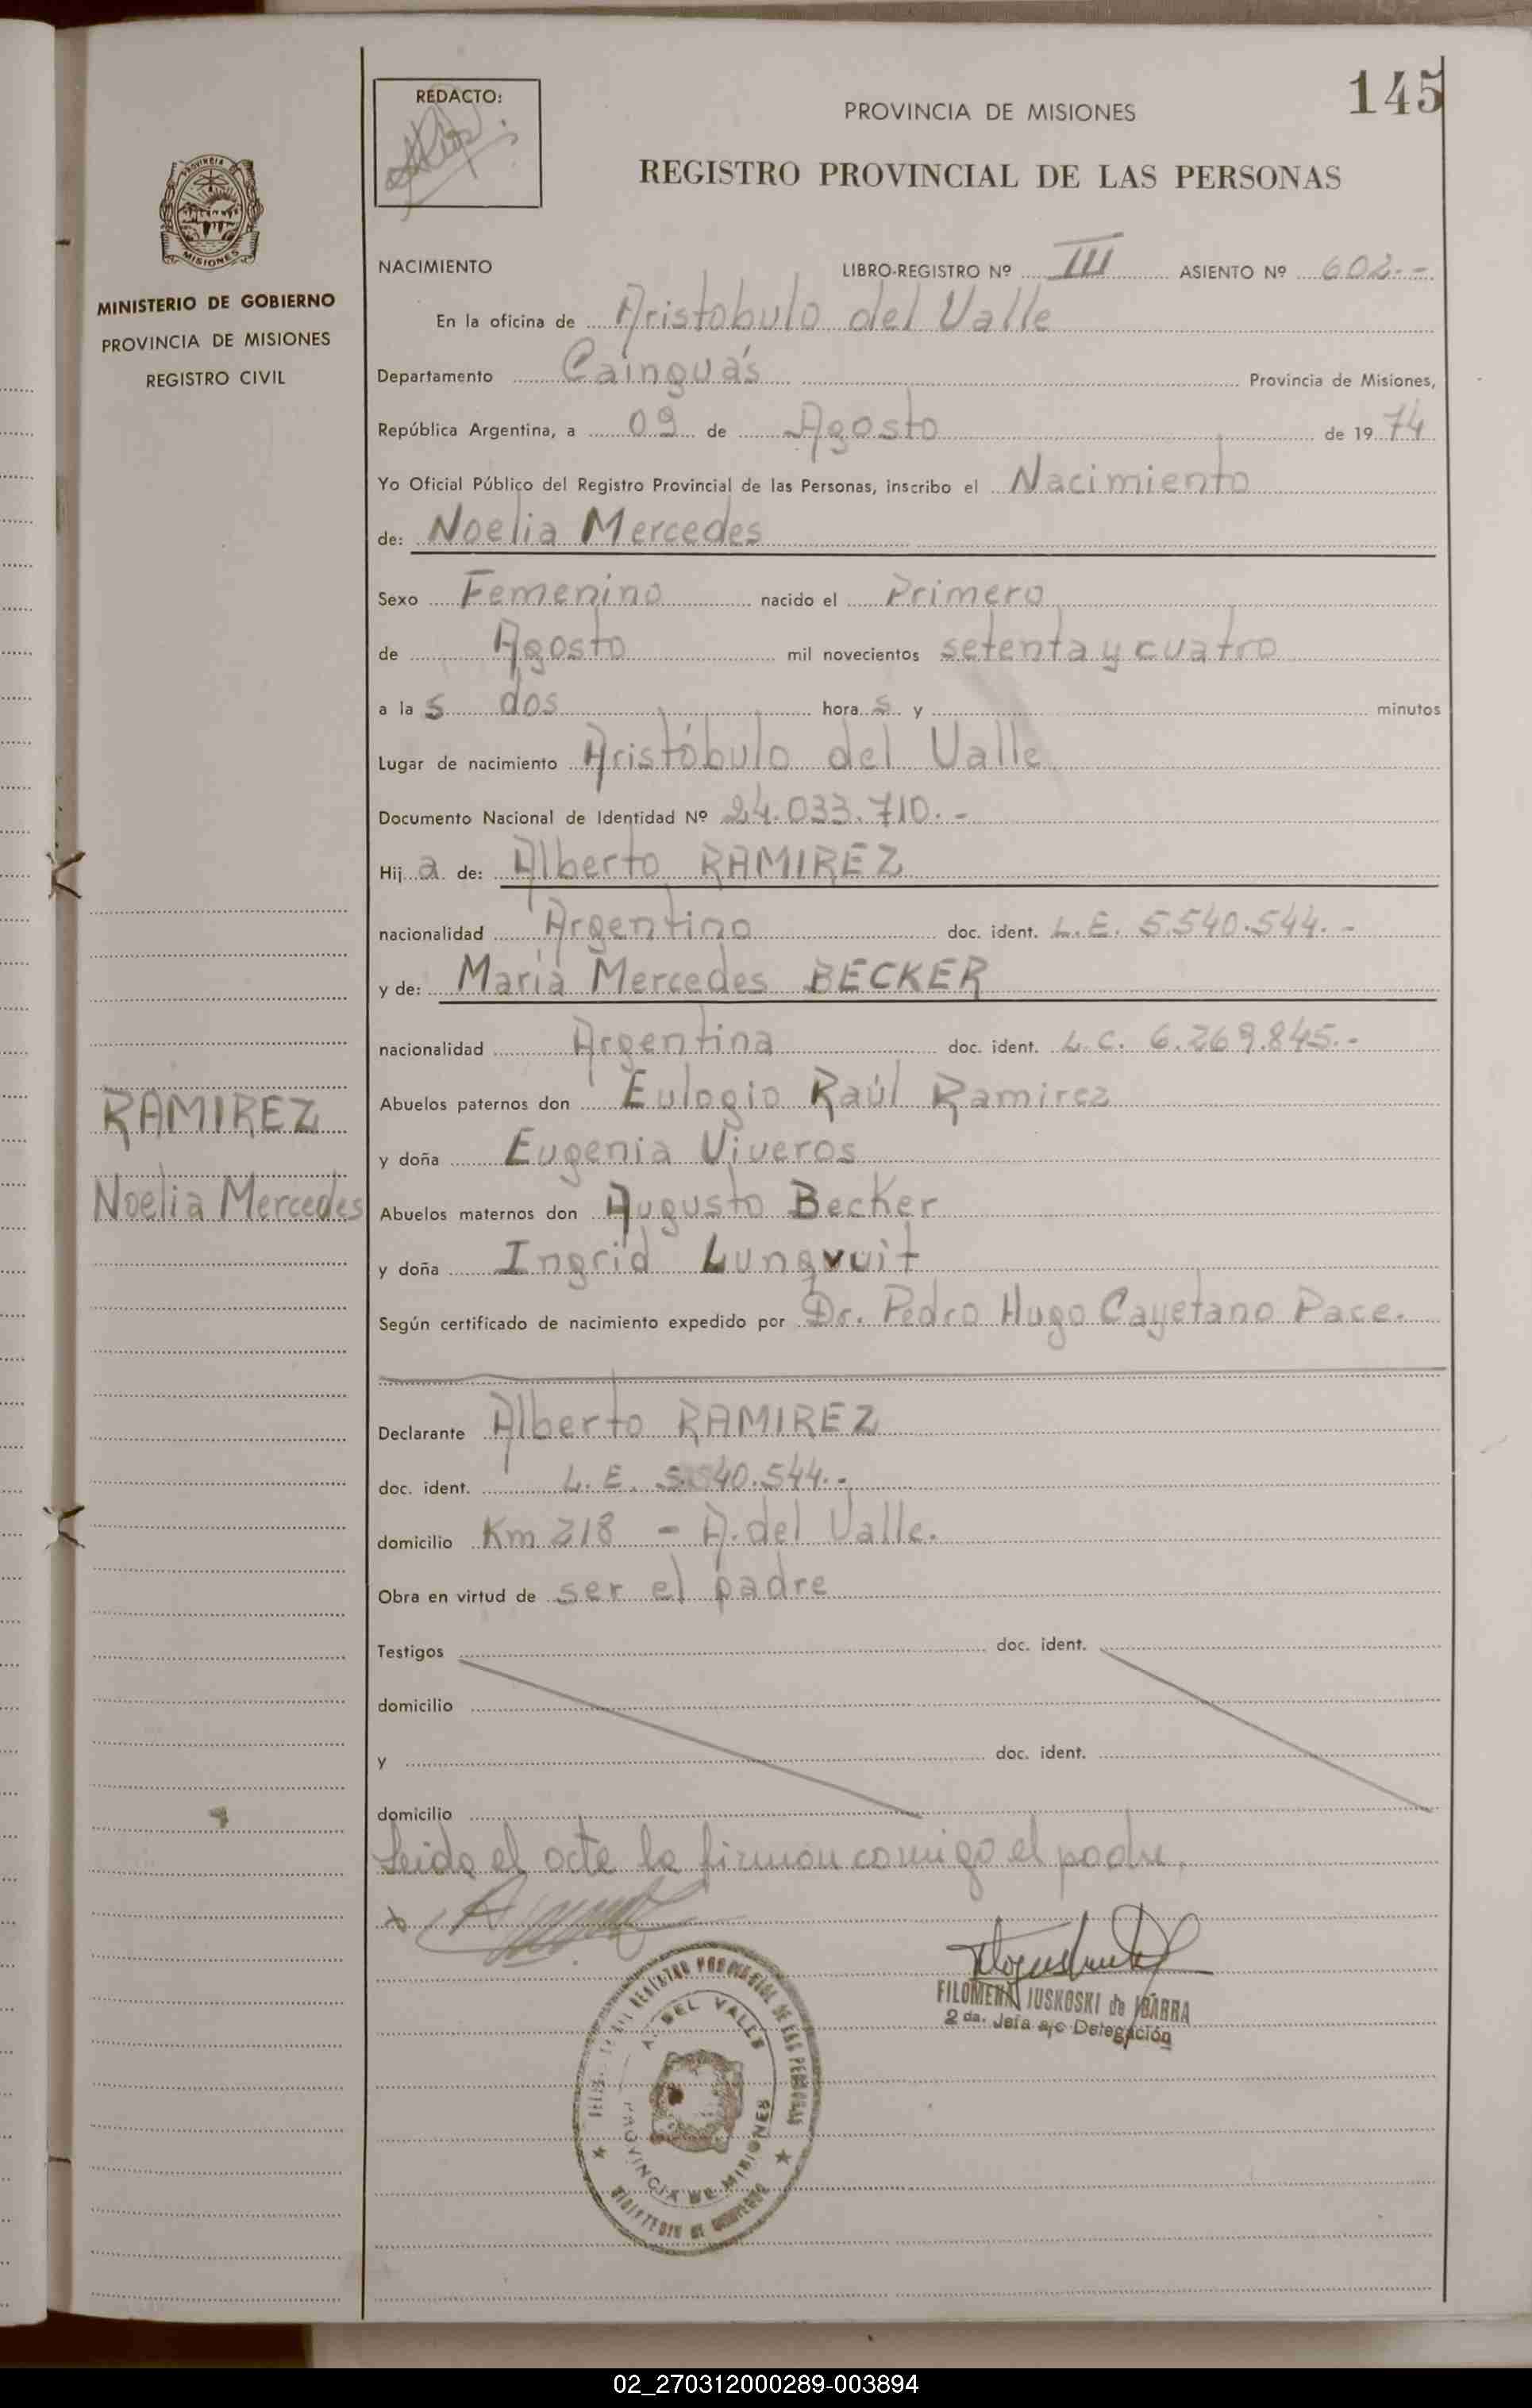 145
REDACTO:
PROVINCIA DE MISIONES
REGISTRO PROVINCIAL DE LAS PERSONAS
PROVINCIA
MISIONES
MINISTERIO DE GOBIERNO
PROVINCIA DE MISIONES
REGISTRO CIVIL
NACIMIENTO LIBRO-REGISTRO Nº III ASIENTO Nº 602.-
En la oficina de Aristobulo del Valle
Departamento Cainguás Provincia de Misiones,
República Argentina, a 09 de Agosto de 1974
Yo Oficial Público del Registro Provincial de las Personas, inscribo el Nacimiento
de: Noelia Mercedes
Sexo Femenino nacido el Primero
de Agosto mil novecientos setenta y cuatro
a las dos horas y minutos
Lugar de nacimiento Aristóbulo del Valle
Documento Nacional de Identidad Nº 24.033.710.-
Hija de: Alberto RAMIREZ
nacionalidad Argentino doc. ident. L.E. 5.540.544.-
y de: Maria Mercedes BECKER
nacionalidad Argentina doc. ident. L.C. 6.269.845.-
Abuelos paternos don Eulogio Raúl Ramirez
y doña Eugenia Viveros
RAMIREZ
Noelia Mercedes
Abuelos maternos don Augusto Becker
y doña Ingrid Lunqvuit
Según certificado de nacimiento expedido por Dr. Pedro Hugo Cayetano Pace.
Declarante Alberto RAMIREZ
doc. ident. L.E. 5.540.544.-
domicilio Km 218 - A. del Valle.
Obra en virtud de ser el padre
Testigos doc. ident.
domicilio
y doc. ident.
domicilio
Leida el acta la firman comigo el padre.
FILOMENA IUSKOSKI de IBARRA
2 da. Jefa a/c Delegación
REGISTRO PROVINCIAL DE LAS PERSONAS
A. DEL VALLE
PROVINCIA DE MISIONES
MINISTERIO DE GOBIERNO
02_270312000289-003894